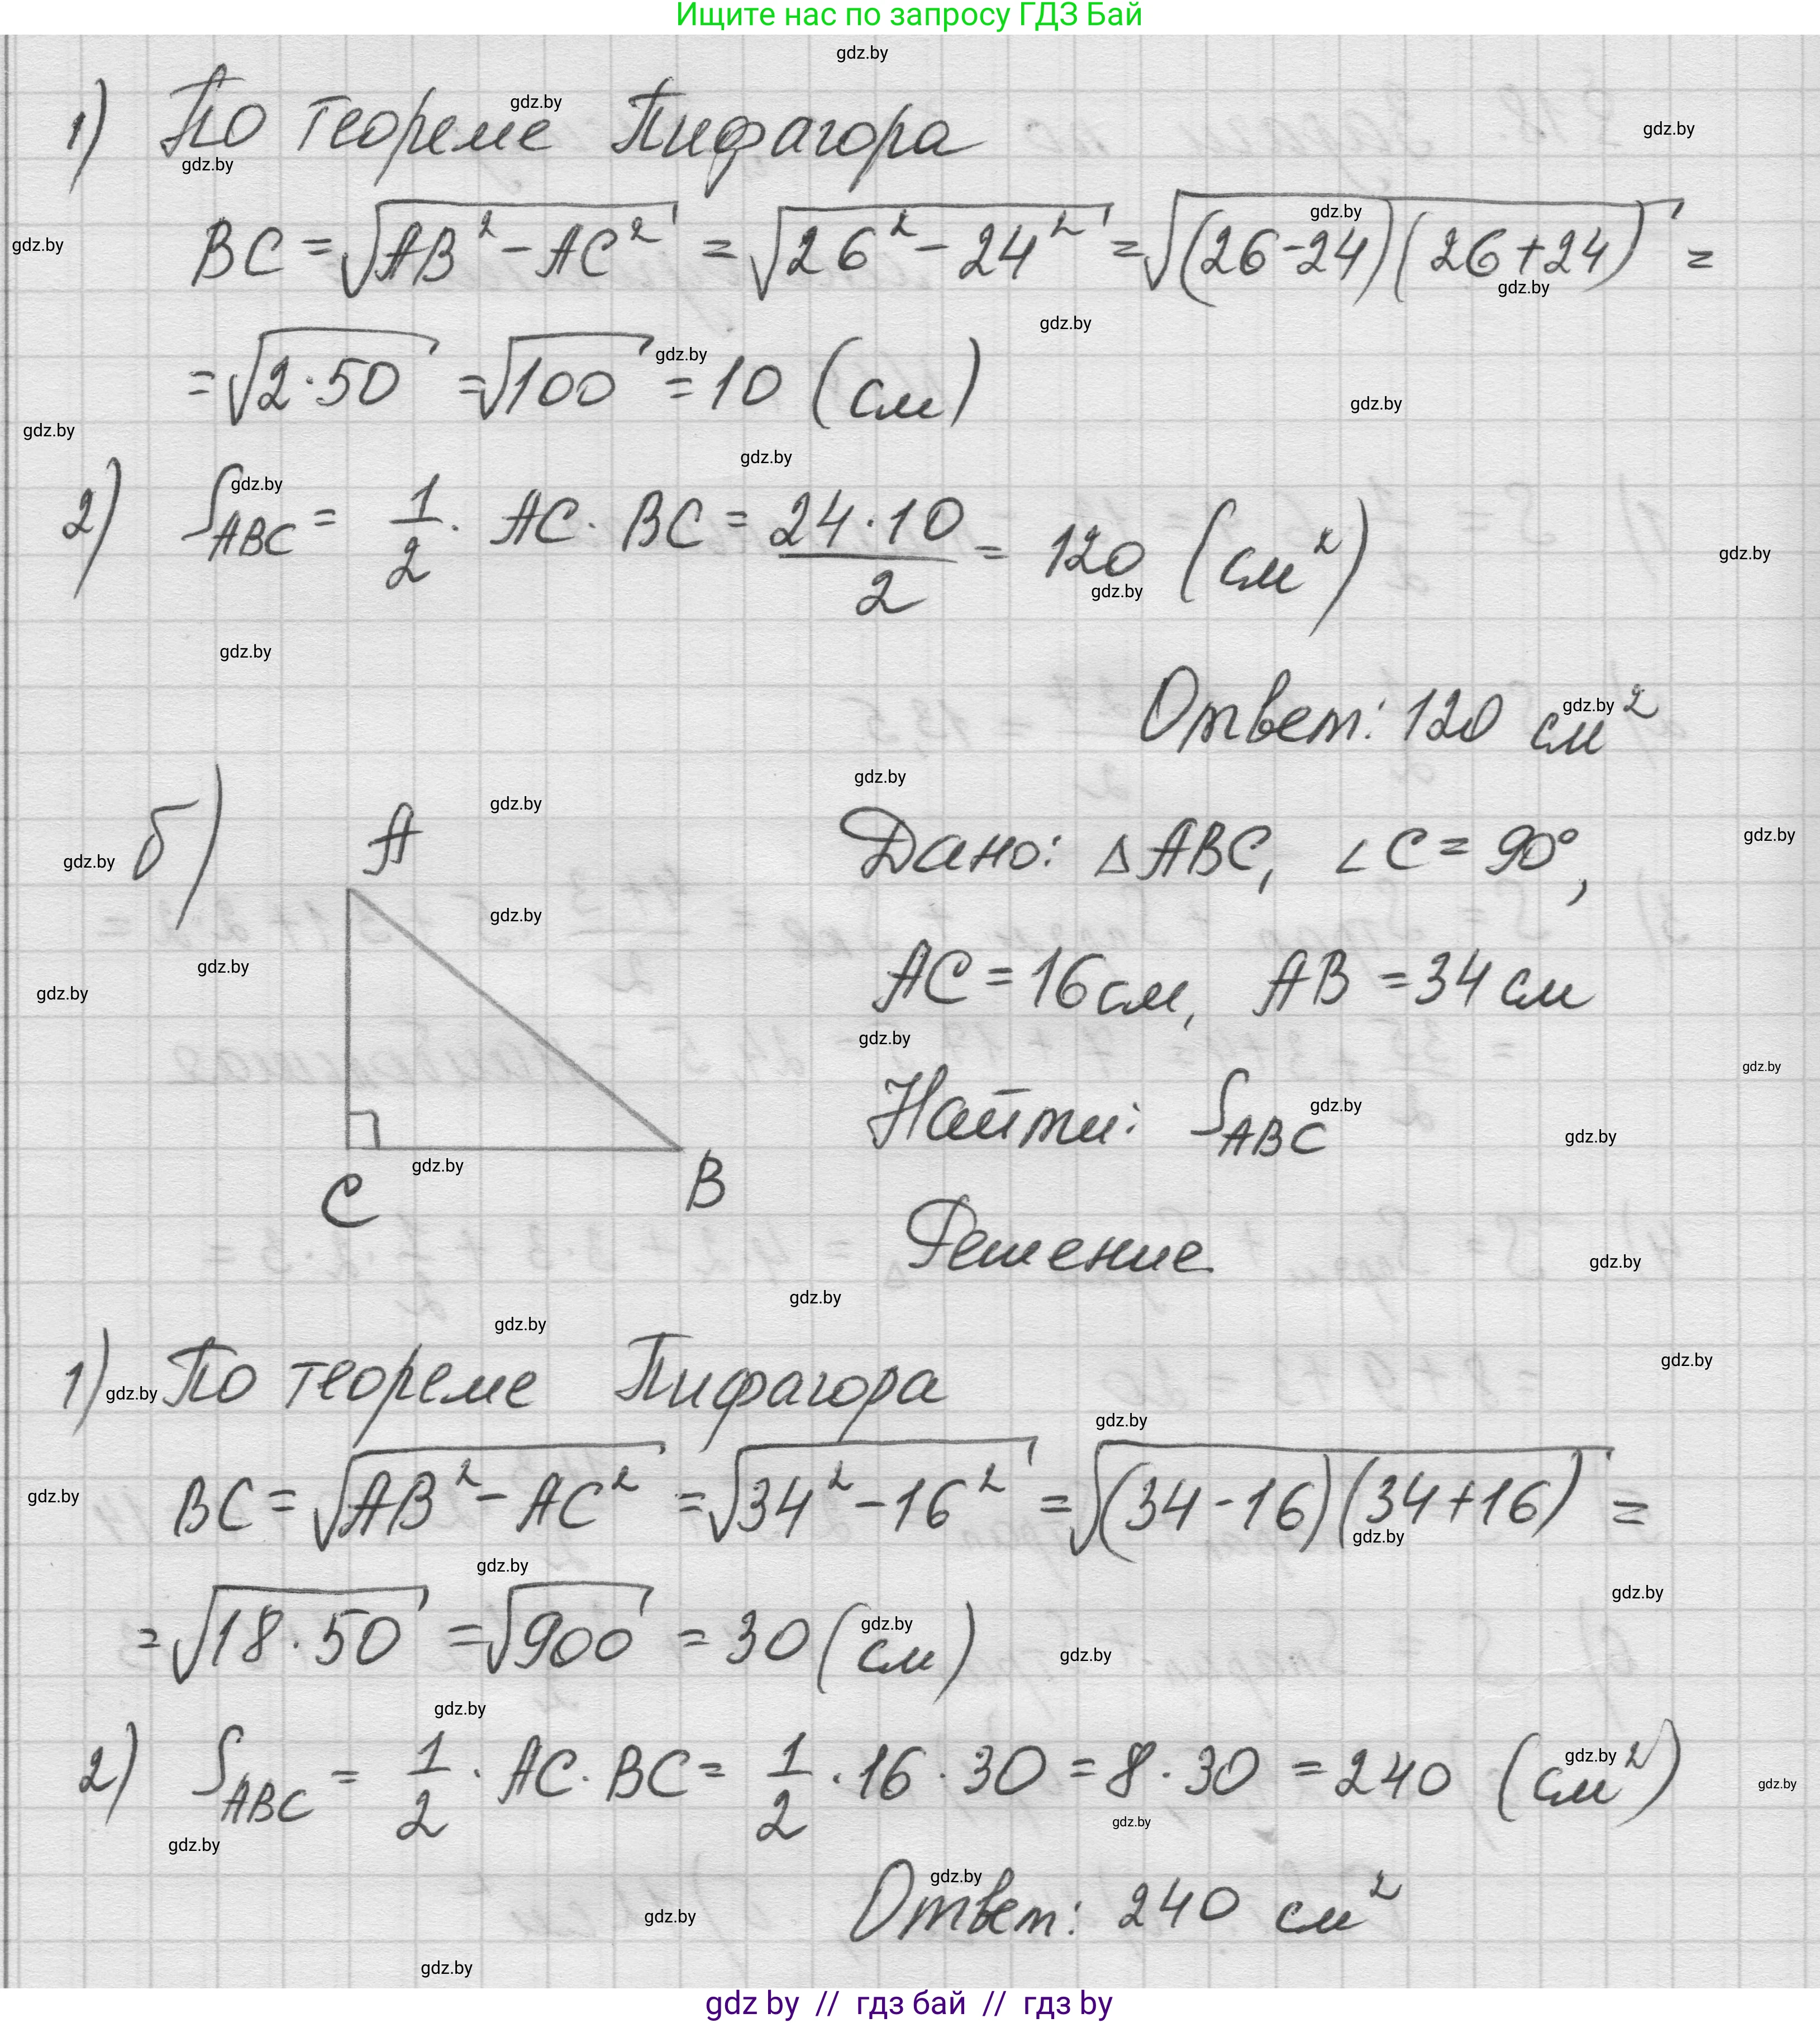 Ищите нас по запросу ГДЗ Бай
1) По теореме Пифагора
BC = √(AB² - AC²) = √(26² - 24²) = √((26-24)(26+24)) =
= √(2·50) = √100 = 10 (см)
2) S_ABC = 1/2 · AC · BC = (24·10)/2 = 120 (см²)
Ответ: 120 см²
б) A
Дано: △ABC, ∠C = 90°,
AC = 16 см, AB = 34 см
Найти: S_ABC
C B
Решение
1) По теореме Пифагора
BC = √(AB² - AC²) = √(34² - 16²) = √((34-16)(34+16)) =
= √(18·50) = √900 = 30 (см)
2) S_ABC = 1/2 · AC · BC = 1/2 · 16 · 30 = 8 · 30 = 240 (см²)
Ответ: 240 см²
gdz by // гдз бай // гдз by